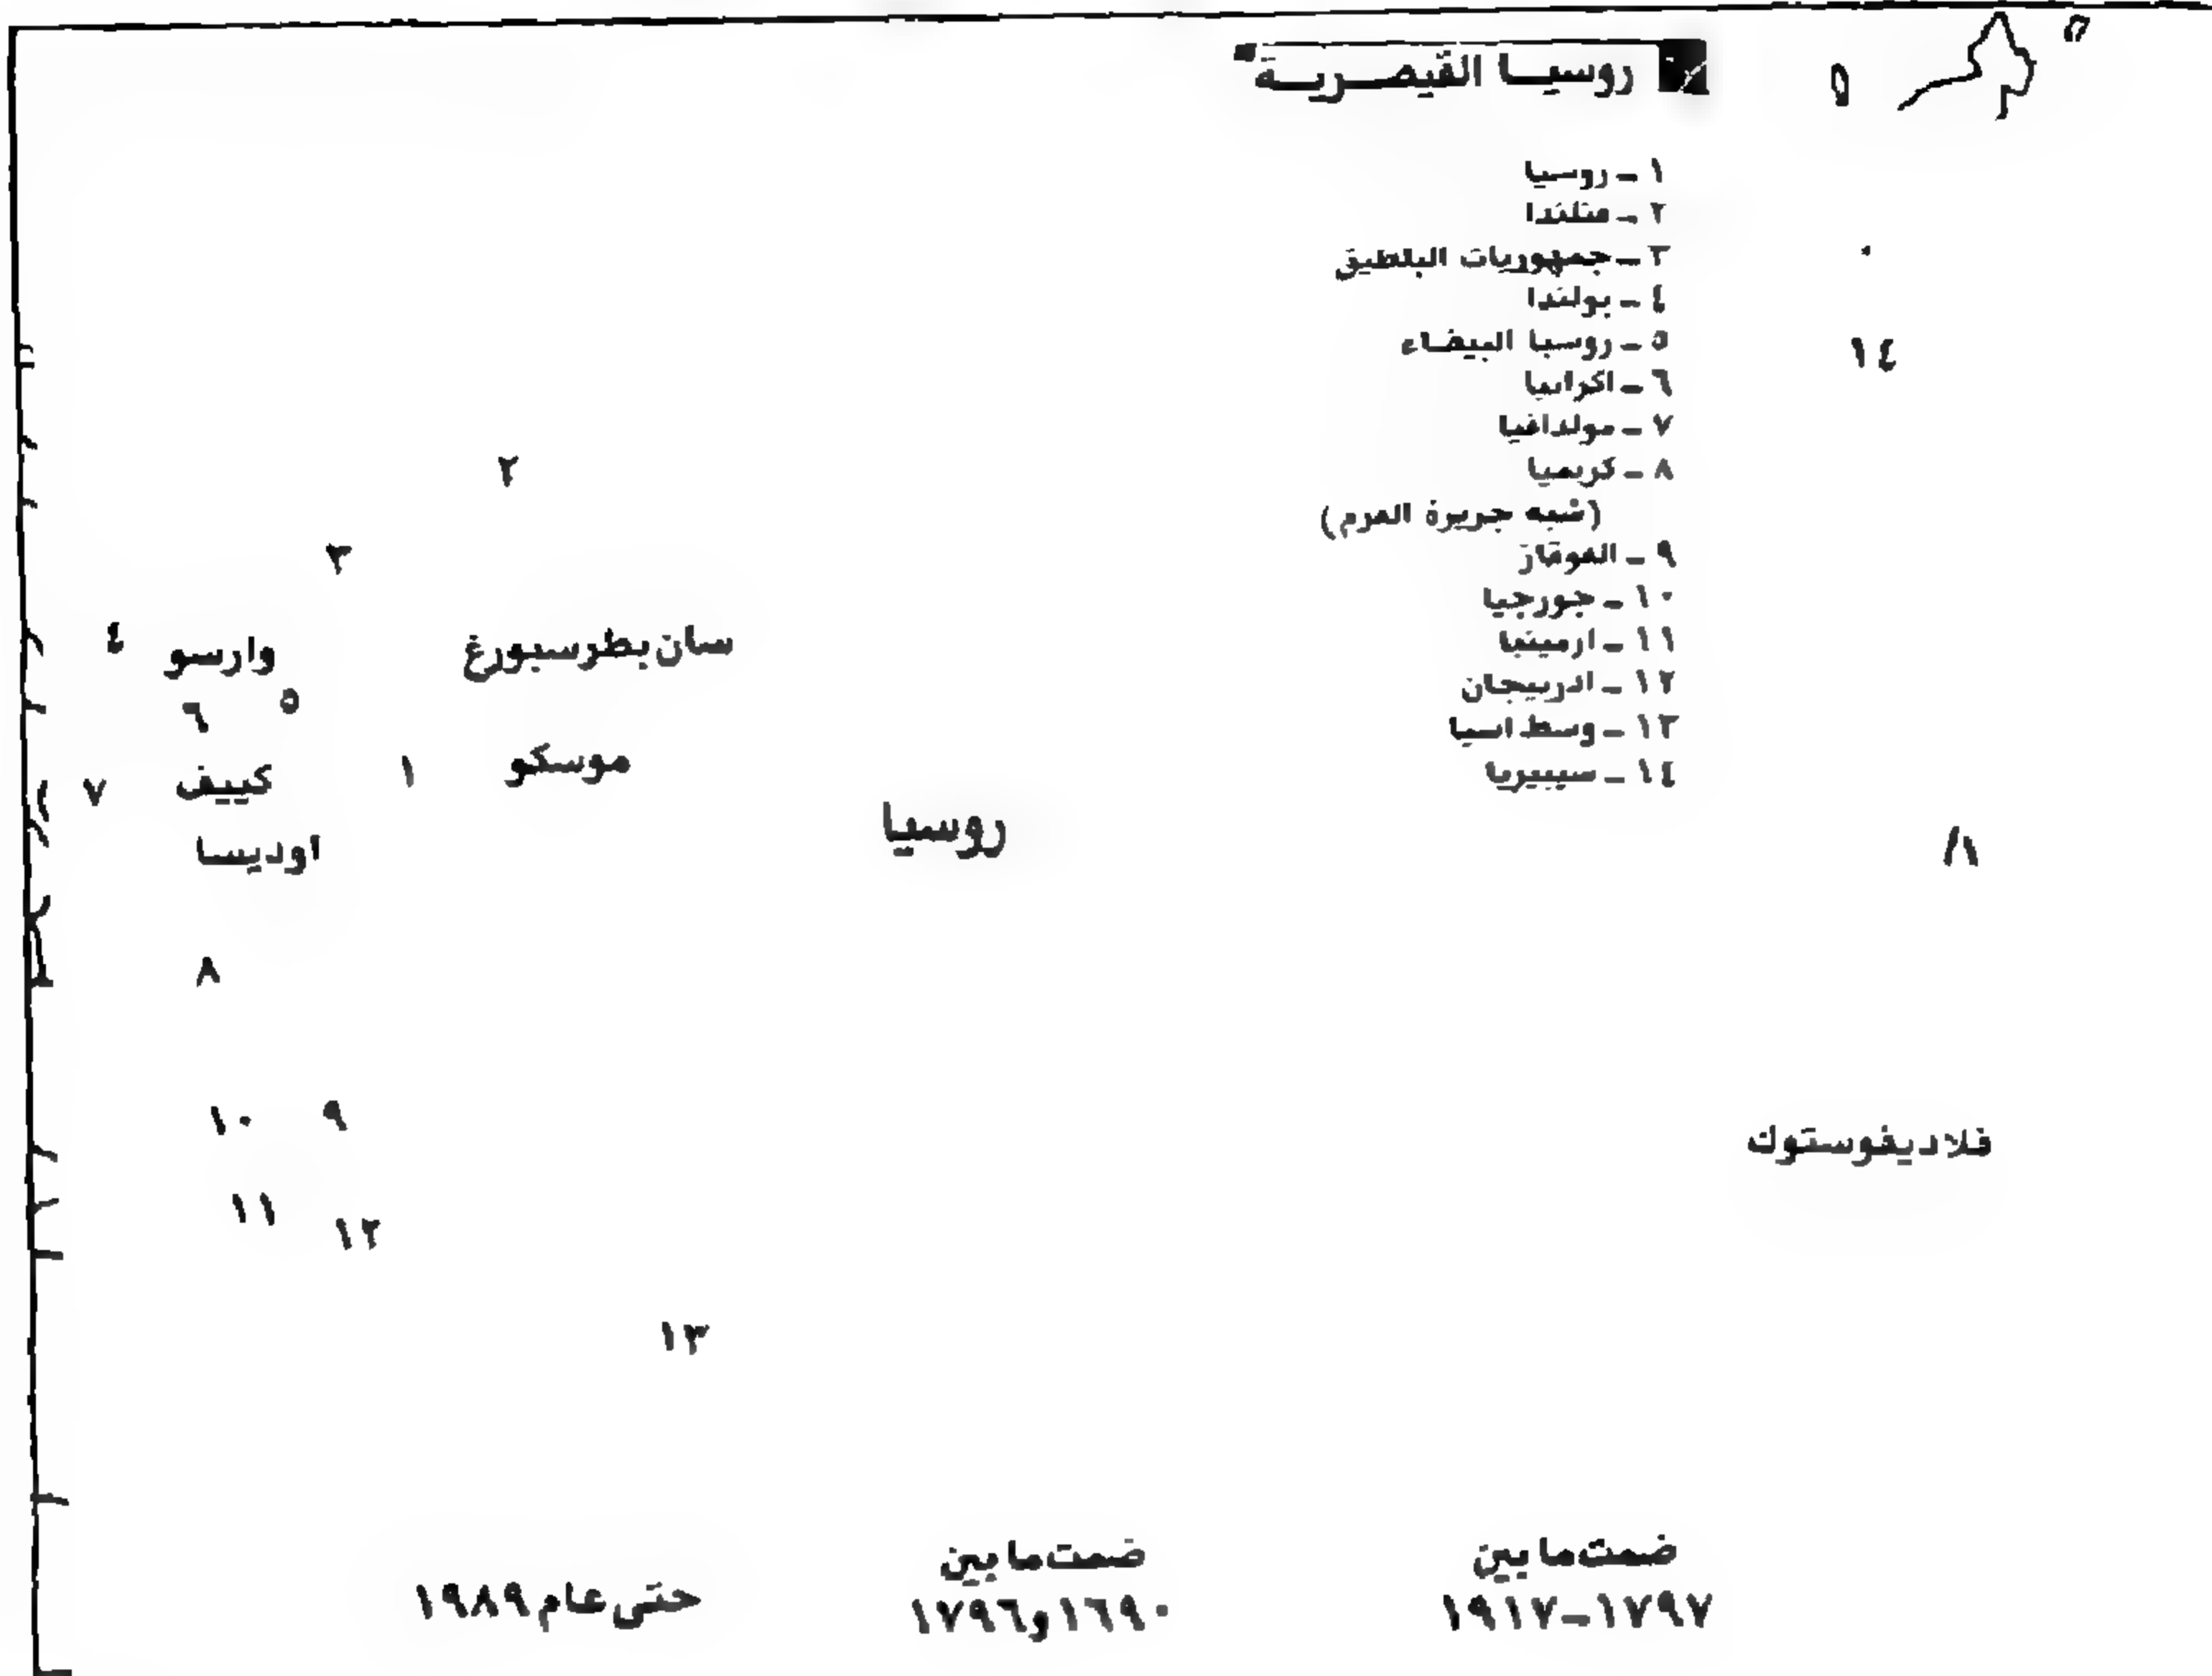 روسيا القيصرية
١ - روسيا
٢ - فنلندا
٣ - جمهوريات البلطيق
٤ - بولندا
٥ - روسيا البيضاء
٦ - اكرانيا
٧ - مولدافيا
٨ - كريميا
(شبه جزيرة القرم)
٩ - القوقاز
١٠ - جورجيا
١١ - ارمينيا
١٢ - اذربيجان
١٣ - وسط اسيا
١٤ - سيبيريا
١٤
٢
٣
سان بطرسبورغ
وارسو
٤
٥
٦
موسكو
١
كييف
٧
روسيا
اوديسا
٨
٩
١٠
فلاديفوستوك
١١
١٢
١٣
ضمت ما بين
١٧٩٧-١٩١٧
ضمت ما بين
١٦٩٠ و١٧٩٦
حتى عام ١٩٨٩